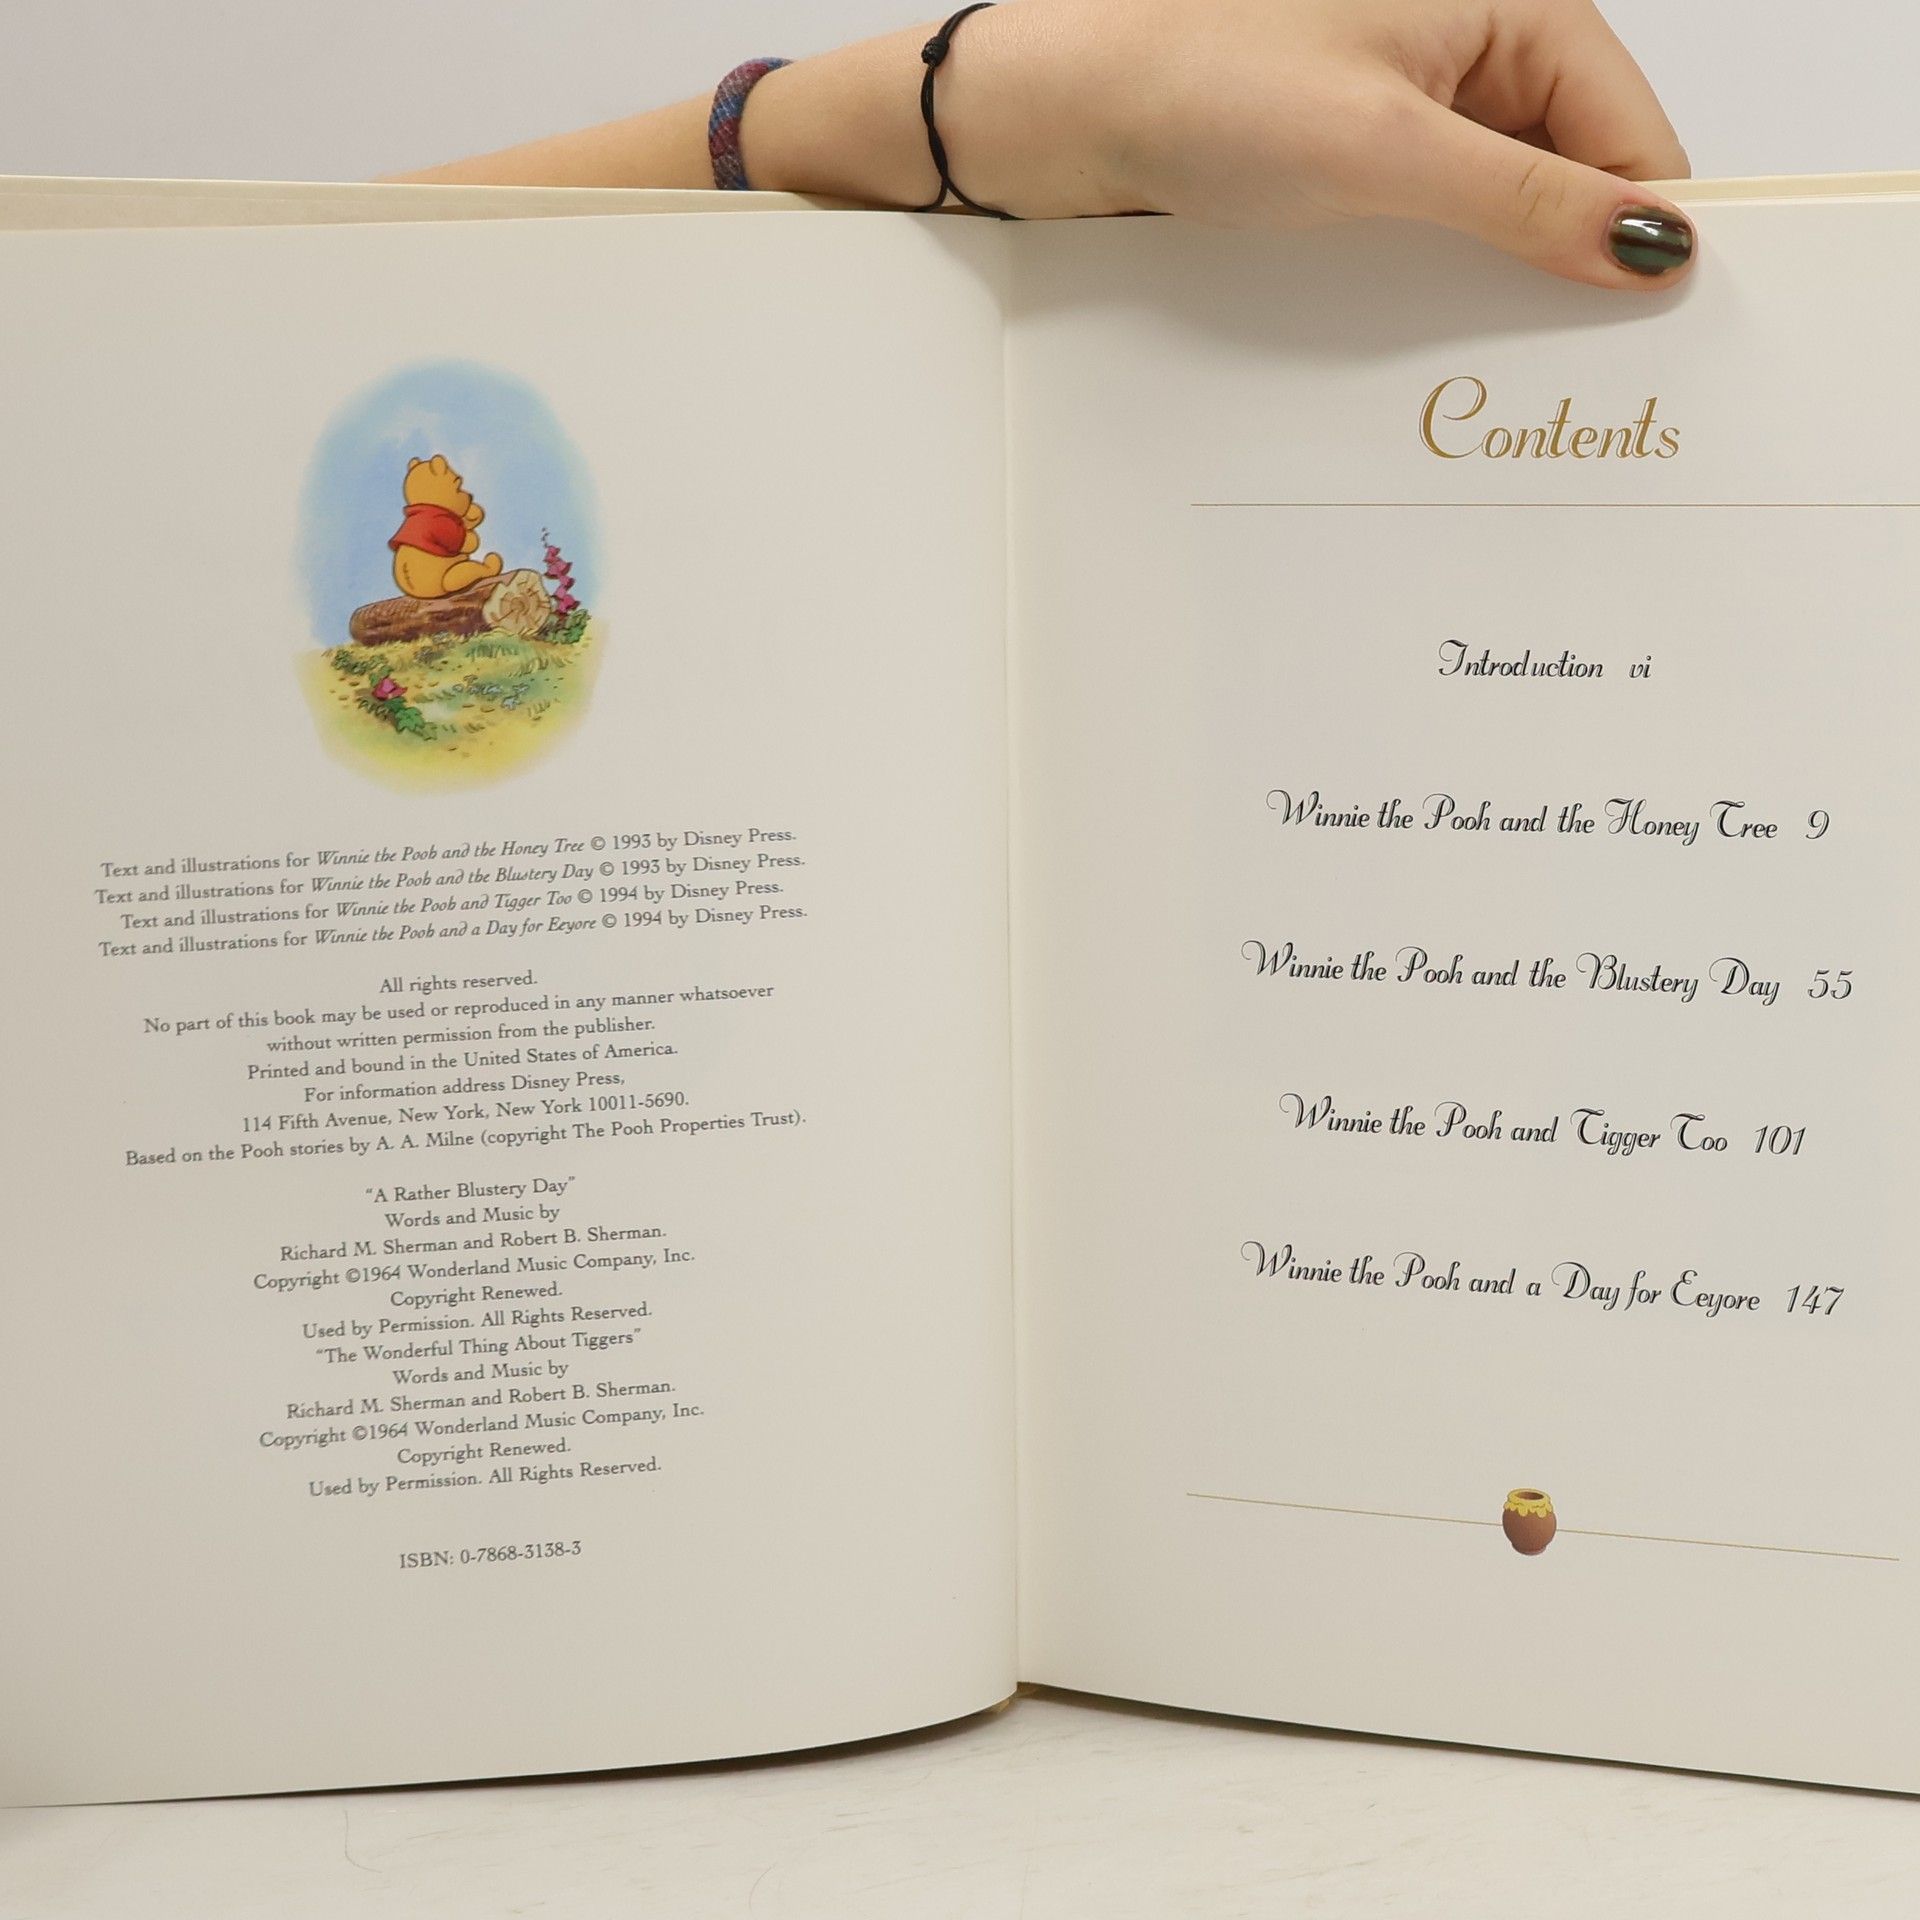 Text and illustrations for Winnie the Pooh and the Honey Tree © 1993 by Disney Press.
Text and illustrations for Winnie the Pooh and the Blustery Day © 1993 by Disney Press.
Text and illustrations for Winnie the Pooh and Tigger Too © 1994 by Disney Press.
Text and illustrations for Winnie the Pooh and a Day for Eeyore © 1994 by Disney Press.
All rights reserved.
No part of this book may be used or reproduced in any manner whatsoever
without written permission from the publisher.
Printed and bound in the United States of America.
For information address Disney Press,
114 Fifth Avenue, New York, New York 10011-5690.
Based on the Pooh stories by A. A. Milne (copyright The Pooh Properties Trust).
“A Rather Blustery Day”
Words and Music by
Richard M. Sherman and Robert B. Sherman.
Copyright ©1964 Wonderland Music Company, Inc.
Copyright Renewed.
Used by Permission. All Rights Reserved.
“The Wonderful Thing About Tiggers”
Words and Music by
Richard M. Sherman and Robert B. Sherman.
Copyright ©1964 Wonderland Music Company, Inc.
Copyright Renewed.
Used by Permission. All Rights Reserved.
ISBN: 0-7868-3138-3
Contents
Introduction vi
Winnie the Pooh and the Honey Tree 9
Winnie the Pooh and the Blustery Day 55
Winnie the Pooh and Tigger Too 101
Winnie the Pooh and a Day for Eeyore 147